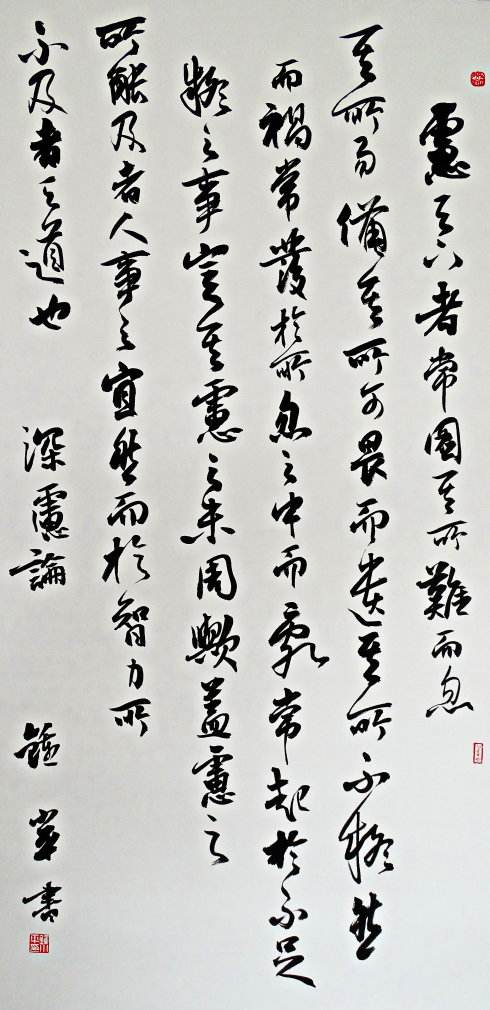 慮天下者常圖其所難而忽
其所易備其所可畏而遺其所不疑然
而禍常發於所忽之中而亂常起於不足
疑之事豈其慮之未周歟蓋慮之
所能及者人事之宜然而於智力所
不及者天道也 深慮論 書